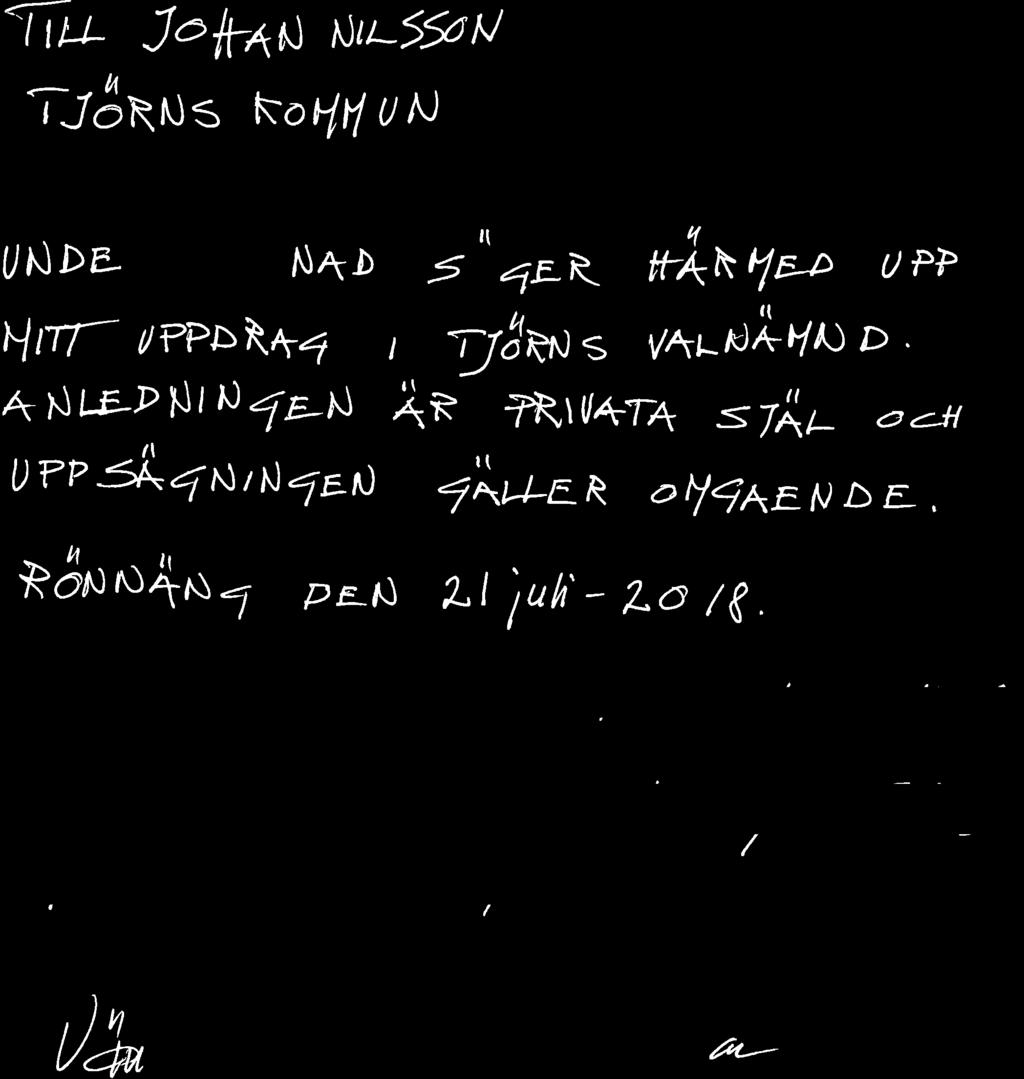 TILL JOHAN NILSSON
TJÖRNS KOMMUN
UNDE NAD S ̈ GER HÄRMED UPP
MITT UPPDRAG I TJÖRNS VALNÄMND.
ANLEDNINGEN ÄR PRIVATA SJÄL OCH
UPPSÄGNINGEN GÄLLER OMGAENDE.
RÖNNÄNG DEN 21 juli - 2018.